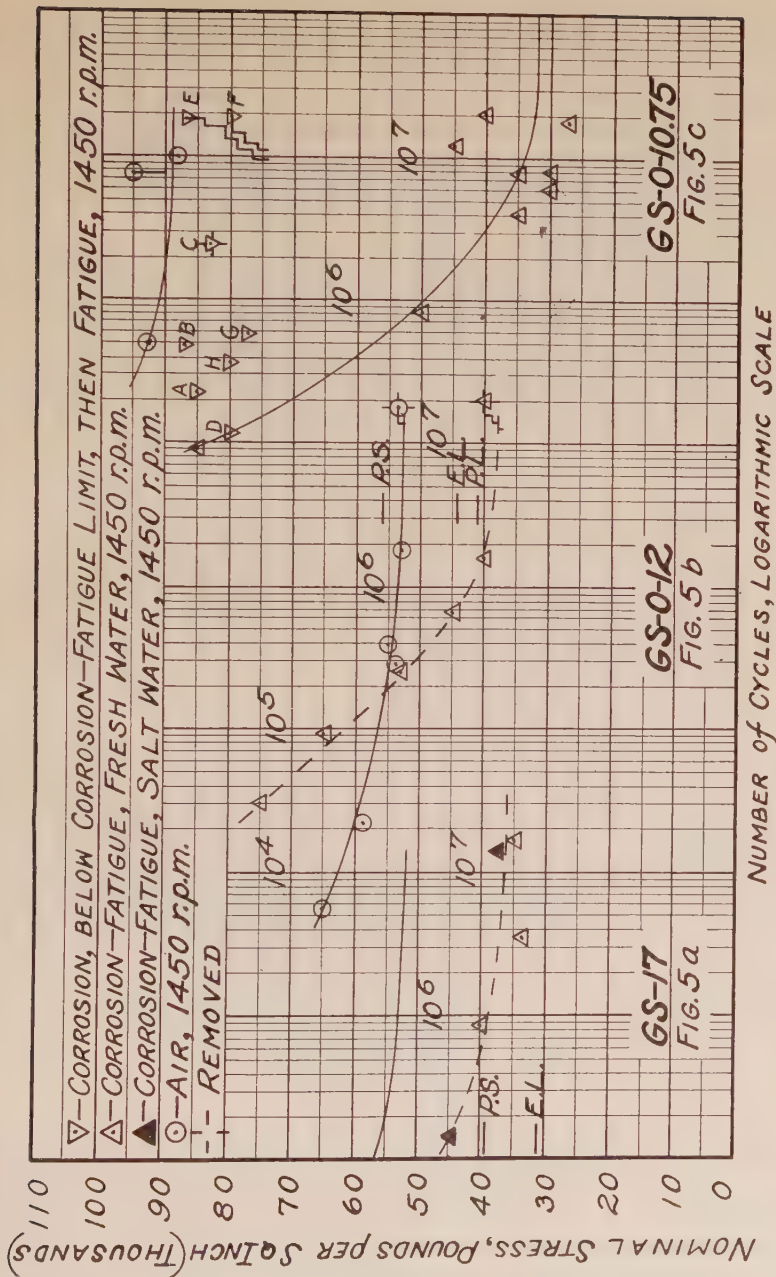 ▽—CORROSION, BELOW CORROSION—FATIGUE LIMIT, THEN FATIGUE, 1450 r.p.m.
△—CORROSION—FATIGUE, FRESH WATER, 1450 r.p.m.
▲—CORROSION—FATIGUE, SALT WATER, 1450 r.p.m.
⊙—AIR, 1450 r.p.m.
-¦- REMOVED
NOMINAL STRESS, POUNDS PER SQ INCH (THOUSANDS)
110
100
90
80
70
60
50
40
30
20
10
0
10⁶
10⁷
P.S.
E.L.
GS-17
FIG. 5a
10⁴
10⁵
10⁶
10⁷
P.S.
E.L.
P.L.
GS-0-12
FIG. 5b
A
B
C
D
E
F
G
H
10⁶
10⁷
GS-0-10.75
FIG. 5c
NUMBER of CYCLES, LOGARITHMIC SCALE